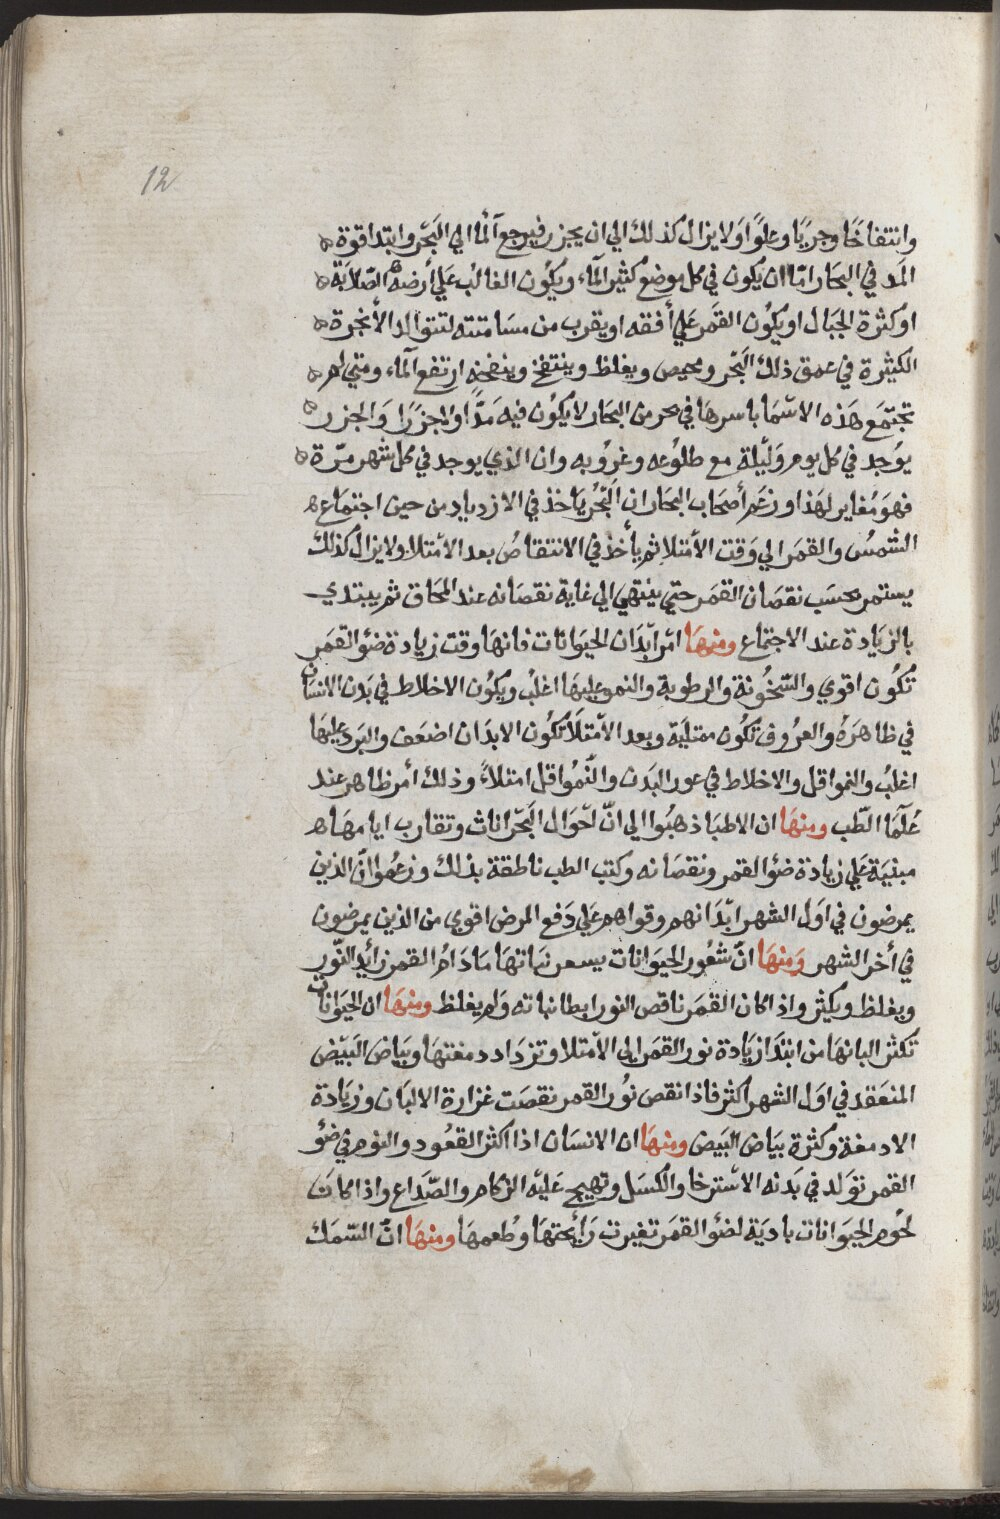 12
وانتفاخًا وجريًا وعلوًا ولا يزال كذلك الي ان يجزر فيرجع الما الي البحر وابتدا قوة
المد في البحار اما ان يكون في كل موضع كثير الماء ويكون الغالب علي أرضه الصلابة
او كثرة الجبال او يكون القمر علي أفقه او يقرب من مسامتته لتتوالد الأبخرة
الكثيرة في عمق ذلك البحر ويغلظ وينتفخ ارتفع الماء ومتي لم
تجتمع هذه الاسما باسرها في بحر من البحار لا يكون فيه مدًا ولا جزرًا والجزر
يوجد في كل يوم وليلة مع طلوعه وغروبه وان الذي يوجد في كل شهر مرة
فهو مغاير لهذا وزعم أصحاب البحار ان البحر ياخذ في الازدياد من حين اجتماع
الشمس والقمر الي وقت الأمتلا ثم يأخذ في الانتقاص بعد الامتلا ولا يزال كذلك
يستمر بحسب نقصان القمر حتي ينتهي الي غاية نقصانه عند المحاق ثم يبتدي
بالزيادة عند الاجتماع ومنها امر ابدان الحيوانات فانها وقت زيادة ضؤ القمر
تكون اقوي والسخونة والرطوبة والنمو عليها اغلب ويكون الاخلاط في بدن الانسان
في ظاهره والعروق تكون ممتلية وبعد الامتلا تكون الابدان اضعف والبرد عليها
اغلب والنمو اقل والاخلاط في غور البدن والنمو اقل امتلاء وذلك أمر ظاهر عند
علما الطب ومنها ان الاطبا ذهبوا الي انّ احوال البحرانات وتقارب ايامها
مبنية علي زيادة ضؤ القمر ونقصانه وكتب الطب ناطقة بذلك وزعموا ان الذين
يمرضون في اول الشهر ابدانهم وقواهم علي دفع المرض اقوي من الذين يمرضون
في أخر الشهر ومنها انّ شعور الحيوانات يسرع نباتها مادام القمر زايد النور
ويغلظ ويكثر واذا كان القمر ناقص النور ابطا نباته ولم يغلظ ومنها ان الحيوانات
تكثر البانها من ابتدا زيادة نور القمر الي الأمتلا وتزداد دمغتها وبياض البيض
المنعقد في اول الشهر اكثر فاذا نقص نور القمر نقصت غزارة الالبان وزيادة
الادمغة وكثرة بياض البيض ومنها ان الانسان اذا اكثر القعود والنوم في ضؤ
القمر تولد في بدنه الاسترخا والكسل وتهيج عليه الزكام والصداع واذا كانت
لحوم الحيوانات بادية لضؤ القمر تغيرت رأيحتها وطعمها ومنها ان السمك